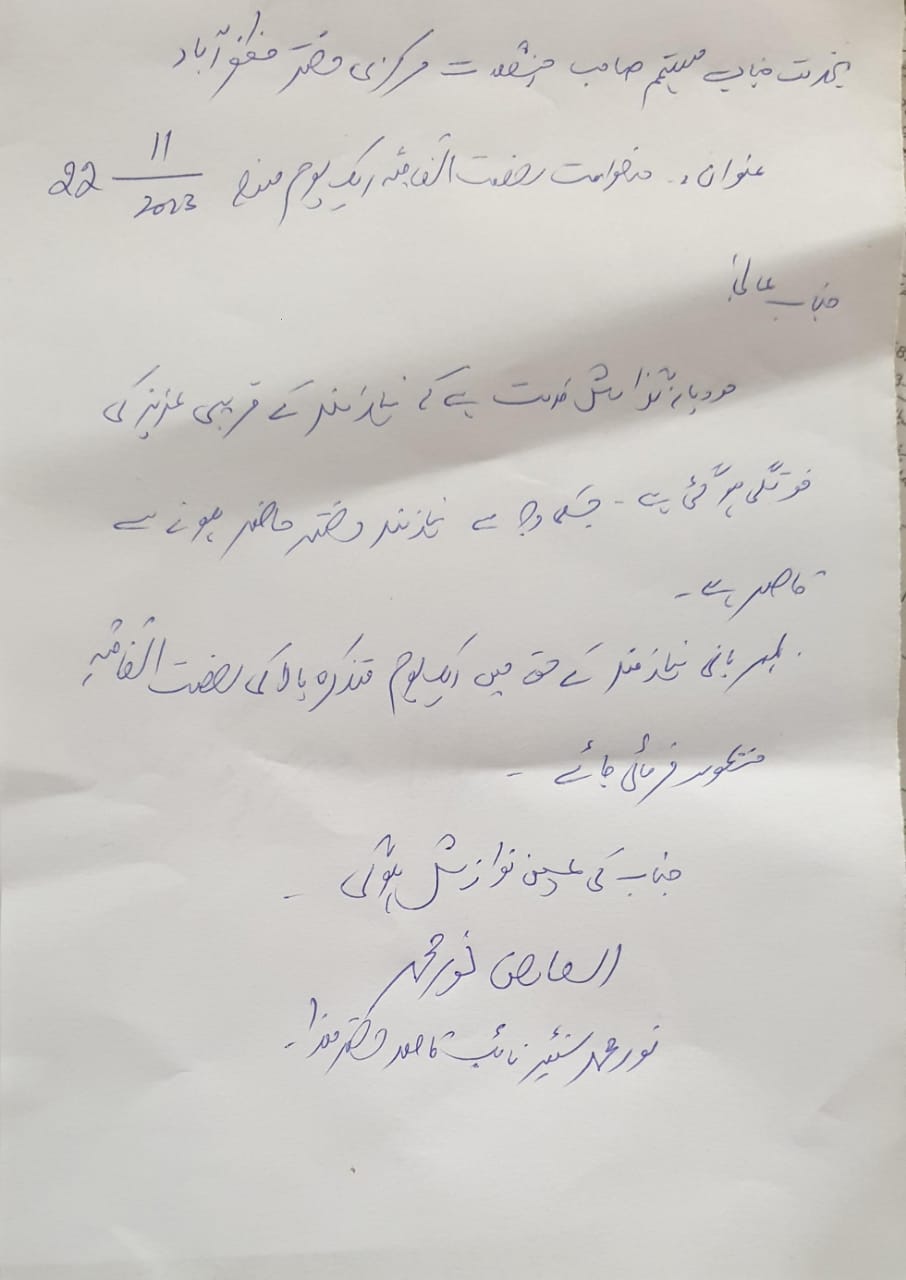 بخدمت جناب مہتمم صاحب جنگلات مرکزی دفتر مظفرآباد
عنوان:۔ درخواست رخصت اتفاقیہ ایک یوم مورخہ 22 11/2023
جناب عالی!
مودبانہ گذارش خدمت ہے کہ نیازمند کے قریبی عزیز کی
فوتگی ہوگئی ہے۔ جسکی وجہ سے نیازمند دفتر حاضر ہونے سے
قاصر ہے۔
بمہربانی نیازمند کے حق میں ایک یوم متذکرہ بالا کی رخصت اتفاقیہ
منظور فرمائی جائے ۔
جناب کی عین نوازش ہوگی ۔
العارض نور محمد
نور محمد سنیئر نائب قاصد دفتر ھذا۔